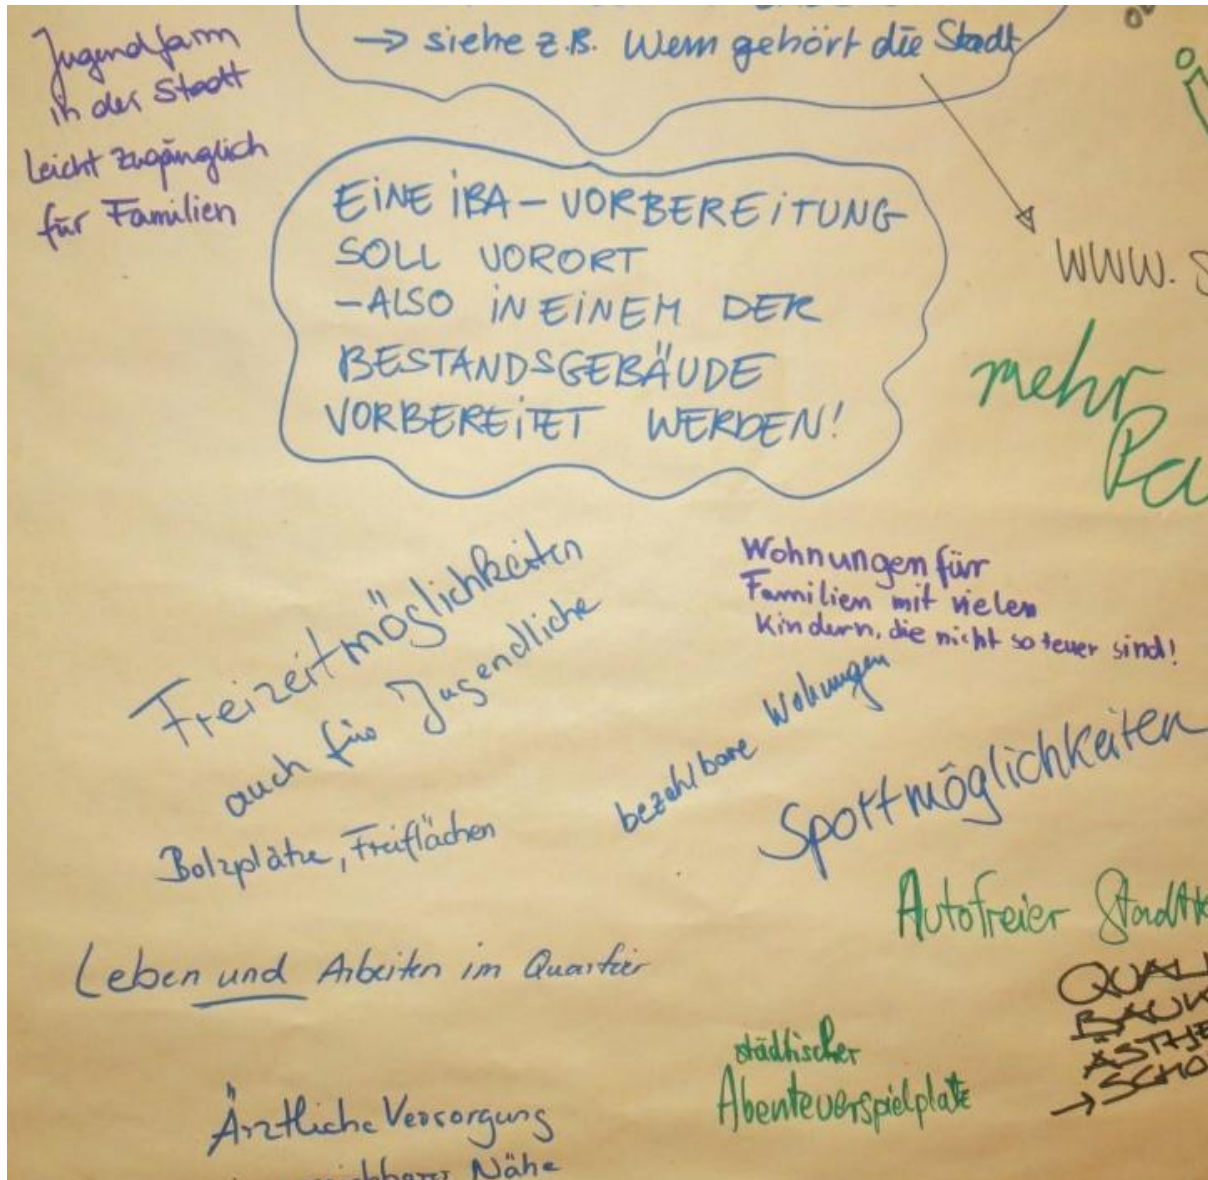 → siehe z.B. Wem gehört die Stadt
Jugendfarm
in der Stadt
leicht zugänglich
für Familien
EINE IBA – VORBEREITUNG
SOLL VORORT
– ALSO IN EINEM DER
BESTANDSGEBÄUDE
VORBEREITET WERDEN!
WWW. S
mehr
Pa
Freizeitmöglichkeiten
auch für Jugendliche
Bolzplätze, Freiflächen
Wohnungen für
Familien mit vielen
Kindern, die nicht so teuer sind!
bezahlbare Wohnungen
Sportmöglichkeiten
Autofreier Stadtte
Leben und Arbeiten im Quartier
QUALI
BAUK
ÄSTHE
→ SCHÖ
städtischer
Abenteuerspielplatz
Ärztliche Versorgung
Nähe